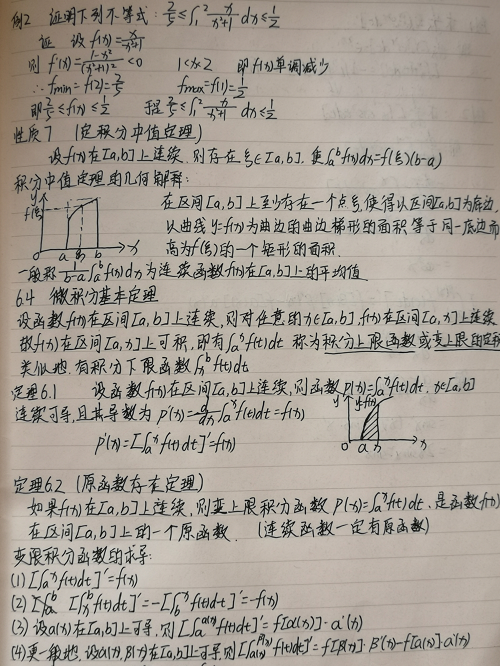 例2 证明下列不等式: 2/5≤∫₁² x/(x²+1) dx≤1/2
证 设f(x)=x/(x²+1)
则 f'(x)=(1-x²)/(x²+1)²<0 1<x<2 即f(x)单调减少
∴fmin=f(2)=2/5 fmax=f(1)=1/2
即2/5≤f(x)≤1/2 于是2/5≤∫₁² x/(x²+1) dx≤1/2
性质7 (定积分中值定理)
设f(x)在[a,b]上连续,则存在ξ∈[a,b],使∫ₐᵇf(x)dx=f(ξ)(b-a)
积分中值定理的几何解释:
y
f(ξ)
0 a ξ b x
在区间[a,b]上至少存在一个点ξ,使得以区间[a,b]为底边,
以曲线y=f(x)为曲边的曲边梯形的面积等于同一底边而
高为f(ξ)的一个矩形的面积.
一般称1/(b-a)∫ₐᵇf(x)dx为连续函数f(x)在[a,b]上的平均值
6.4 微积分基本定理
设函数f(x)在区间[a,b]上连续,则对任意的x∈[a,b],f(x)在区间[a,x]上连续
故f(x)在区间[a,x]上可积,即有∫ₐˣf(t)dt 称为积分上限函数或变上限的定积
类似地,有积分下限函数∫ₓᵇf(t)dt
定理6.1 设函数f(x)在区间[a,b]上连续,则函数P(x)=∫ₐˣf(t)dt, x∈[a,b]
连续可导,且其导数为P'(x)=d/dx∫ₐˣf(t)dt=f(x)
P'(x)=[∫ₐˣf(t)dt]'=f(x)
y y=f(x)
0 a x x
定理6.2 (原函数存在定理)
如果f(x)在[a,b]上连续,则变上限积分函数P(x)=∫ₐˣf(t)dt,是函数f(x)
在区间[a,b]上的一个原函数. (连续函数一定有原函数)
变限积分函数的求导:
(1) [∫ₐˣf(t)dt]'=f(x)
(2) [∫ₓᵇf(t)dt]'=-[∫ᵇˣf(t)dt]'=-f(x)
(3) 设a(x)在[a,b]上可导,则[∫ₐ^a(x) f(t)dt]'=f[a(x)]·a'(x)
(4) 更一般地,设a(x),β(x)在[a,b]上可导则[∫_a(x)^β(x) f(t)dt]'=f[β(x)]·β'(x)-f[a(x)]·a'(x)